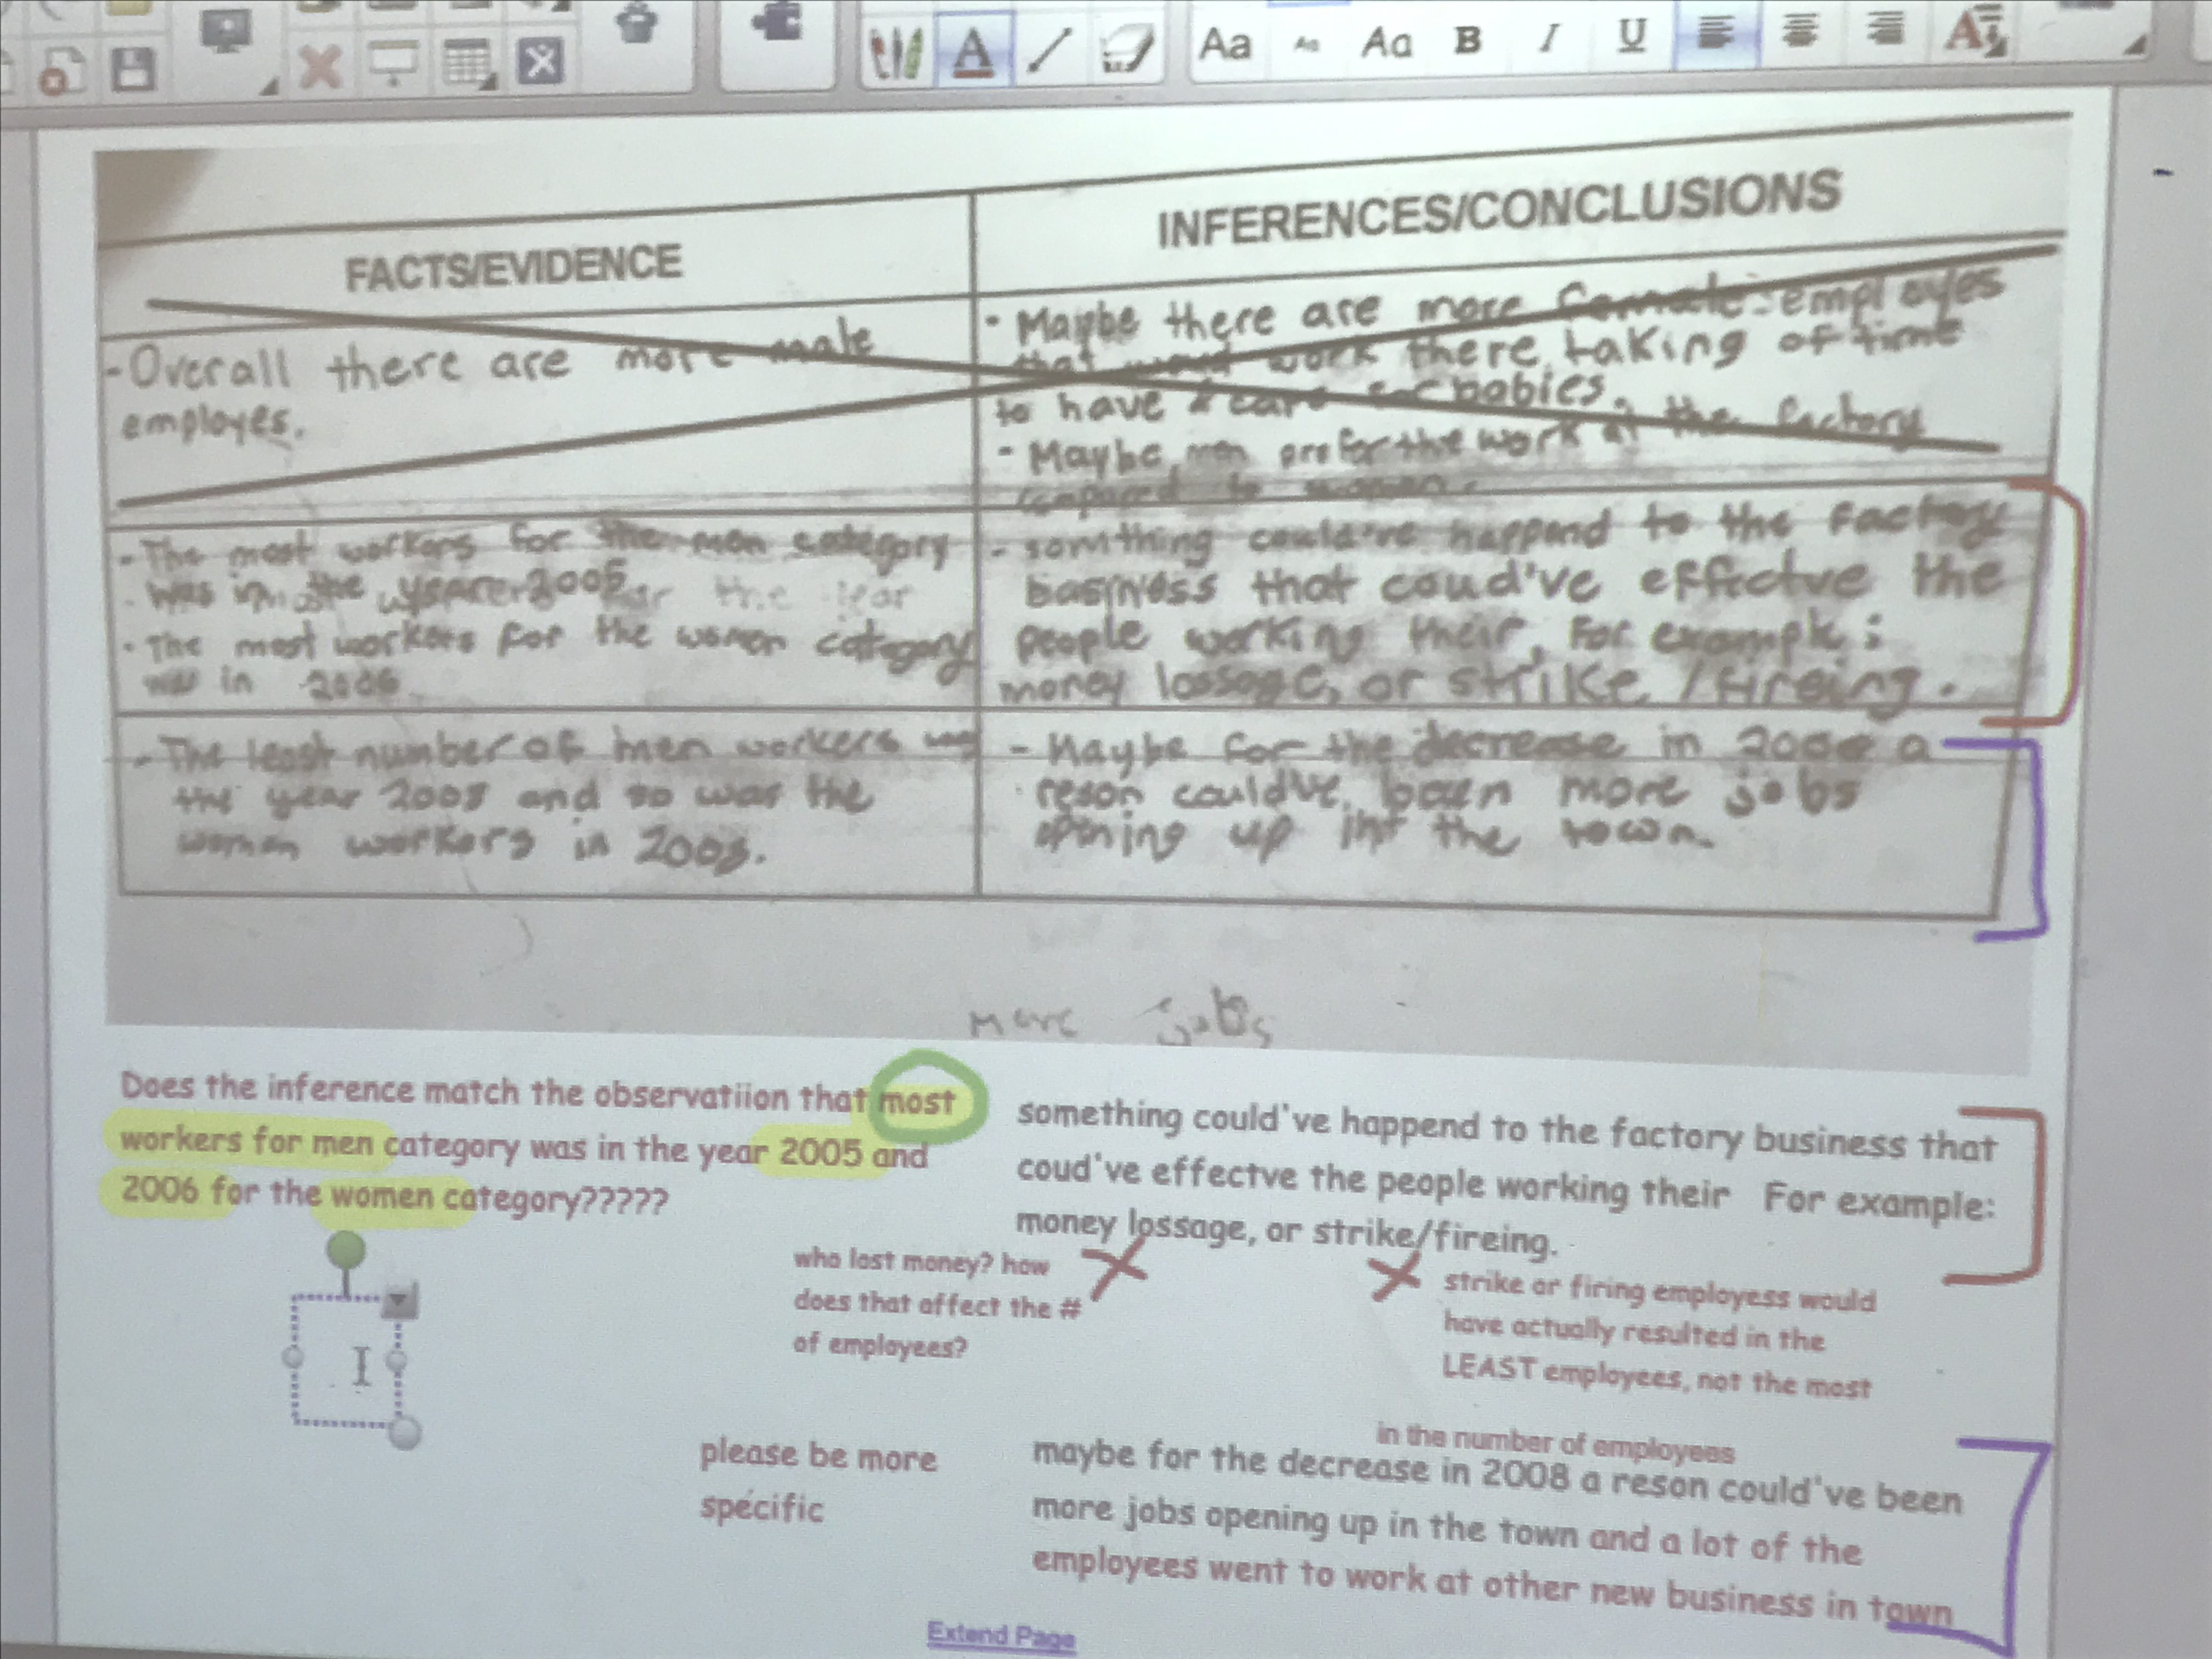 Aa Aa Aa B I U A
FACTS/EVIDENCE
INFERENCES/CONCLUSIONS
-Overall there are more male
employes.
- Maybe there are more female employes
that work there taking of time
to have & care for babies.
- Maybe men prefer the work at the factory
compared to women.
- The most workers for the men category
was in the year 2005
- The most workers for the women category
was in 2006
- somthing could've happend to the factory
business that coud've effectve the
people working their, For example:
money lossage, or strike/fireing.
- The least number of men workers was
the year 2008 and so was the
women workers in 2008.
- Maybe for the decrease in 2008 a
reson could've been more jobs
opening up in the town.
more jobs
Does the inference match the observatiion that most
workers for men category was in the year 2005 and
2006 for the women category?????
something could've happend to the factory business that
coud've effectve the people working their For example:
money lossage, or strike/fireing.
who lost money? how
does that affect the #
of employees?
strike or firing employess would
have actually resulted in the
LEAST employees, not the most
please be more
specific
in the number of employees
maybe for the decrease in 2008 a reson could've been
more jobs opening up in the town and a lot of the
employees went to work at other new business in town
Extend Page